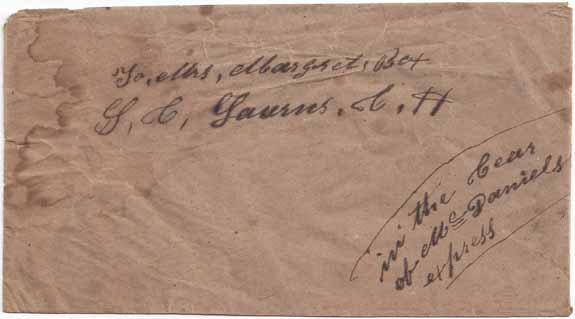 To, Mrs, Margret, Box
S, C, Laurns, C, H
in the Cear
of Mc Daniels
express